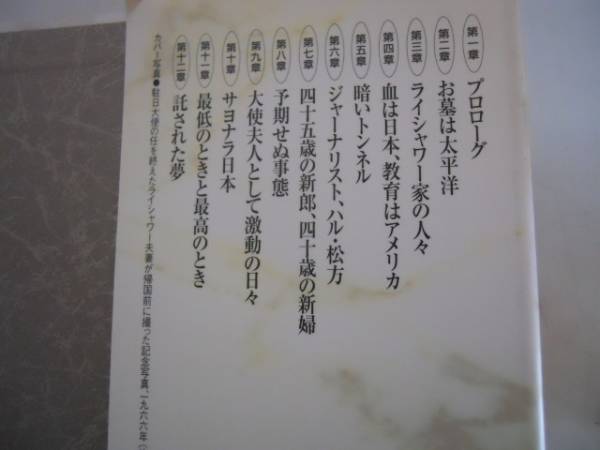 第一章 プロローグ
第二章 お墓は太平洋
第三章 ライシャワー家の人々
第四章 血は日本、教育はアメリカ
第五章 暗いトンネル
第六章 ジャーナリスト、ハル・松方
第七章 四十五歳の新郎、四十歳の新婦
第八章 予期せぬ事態
第九章 大使夫人として激動の日々
第十章 サヨナラ日本
第十一章 最低のときと最高のとき
第十二章 託された夢
カバー写真●駐日大使の任を終えたライシャワー夫妻が帰国前に撮った記念写真、一九六六年